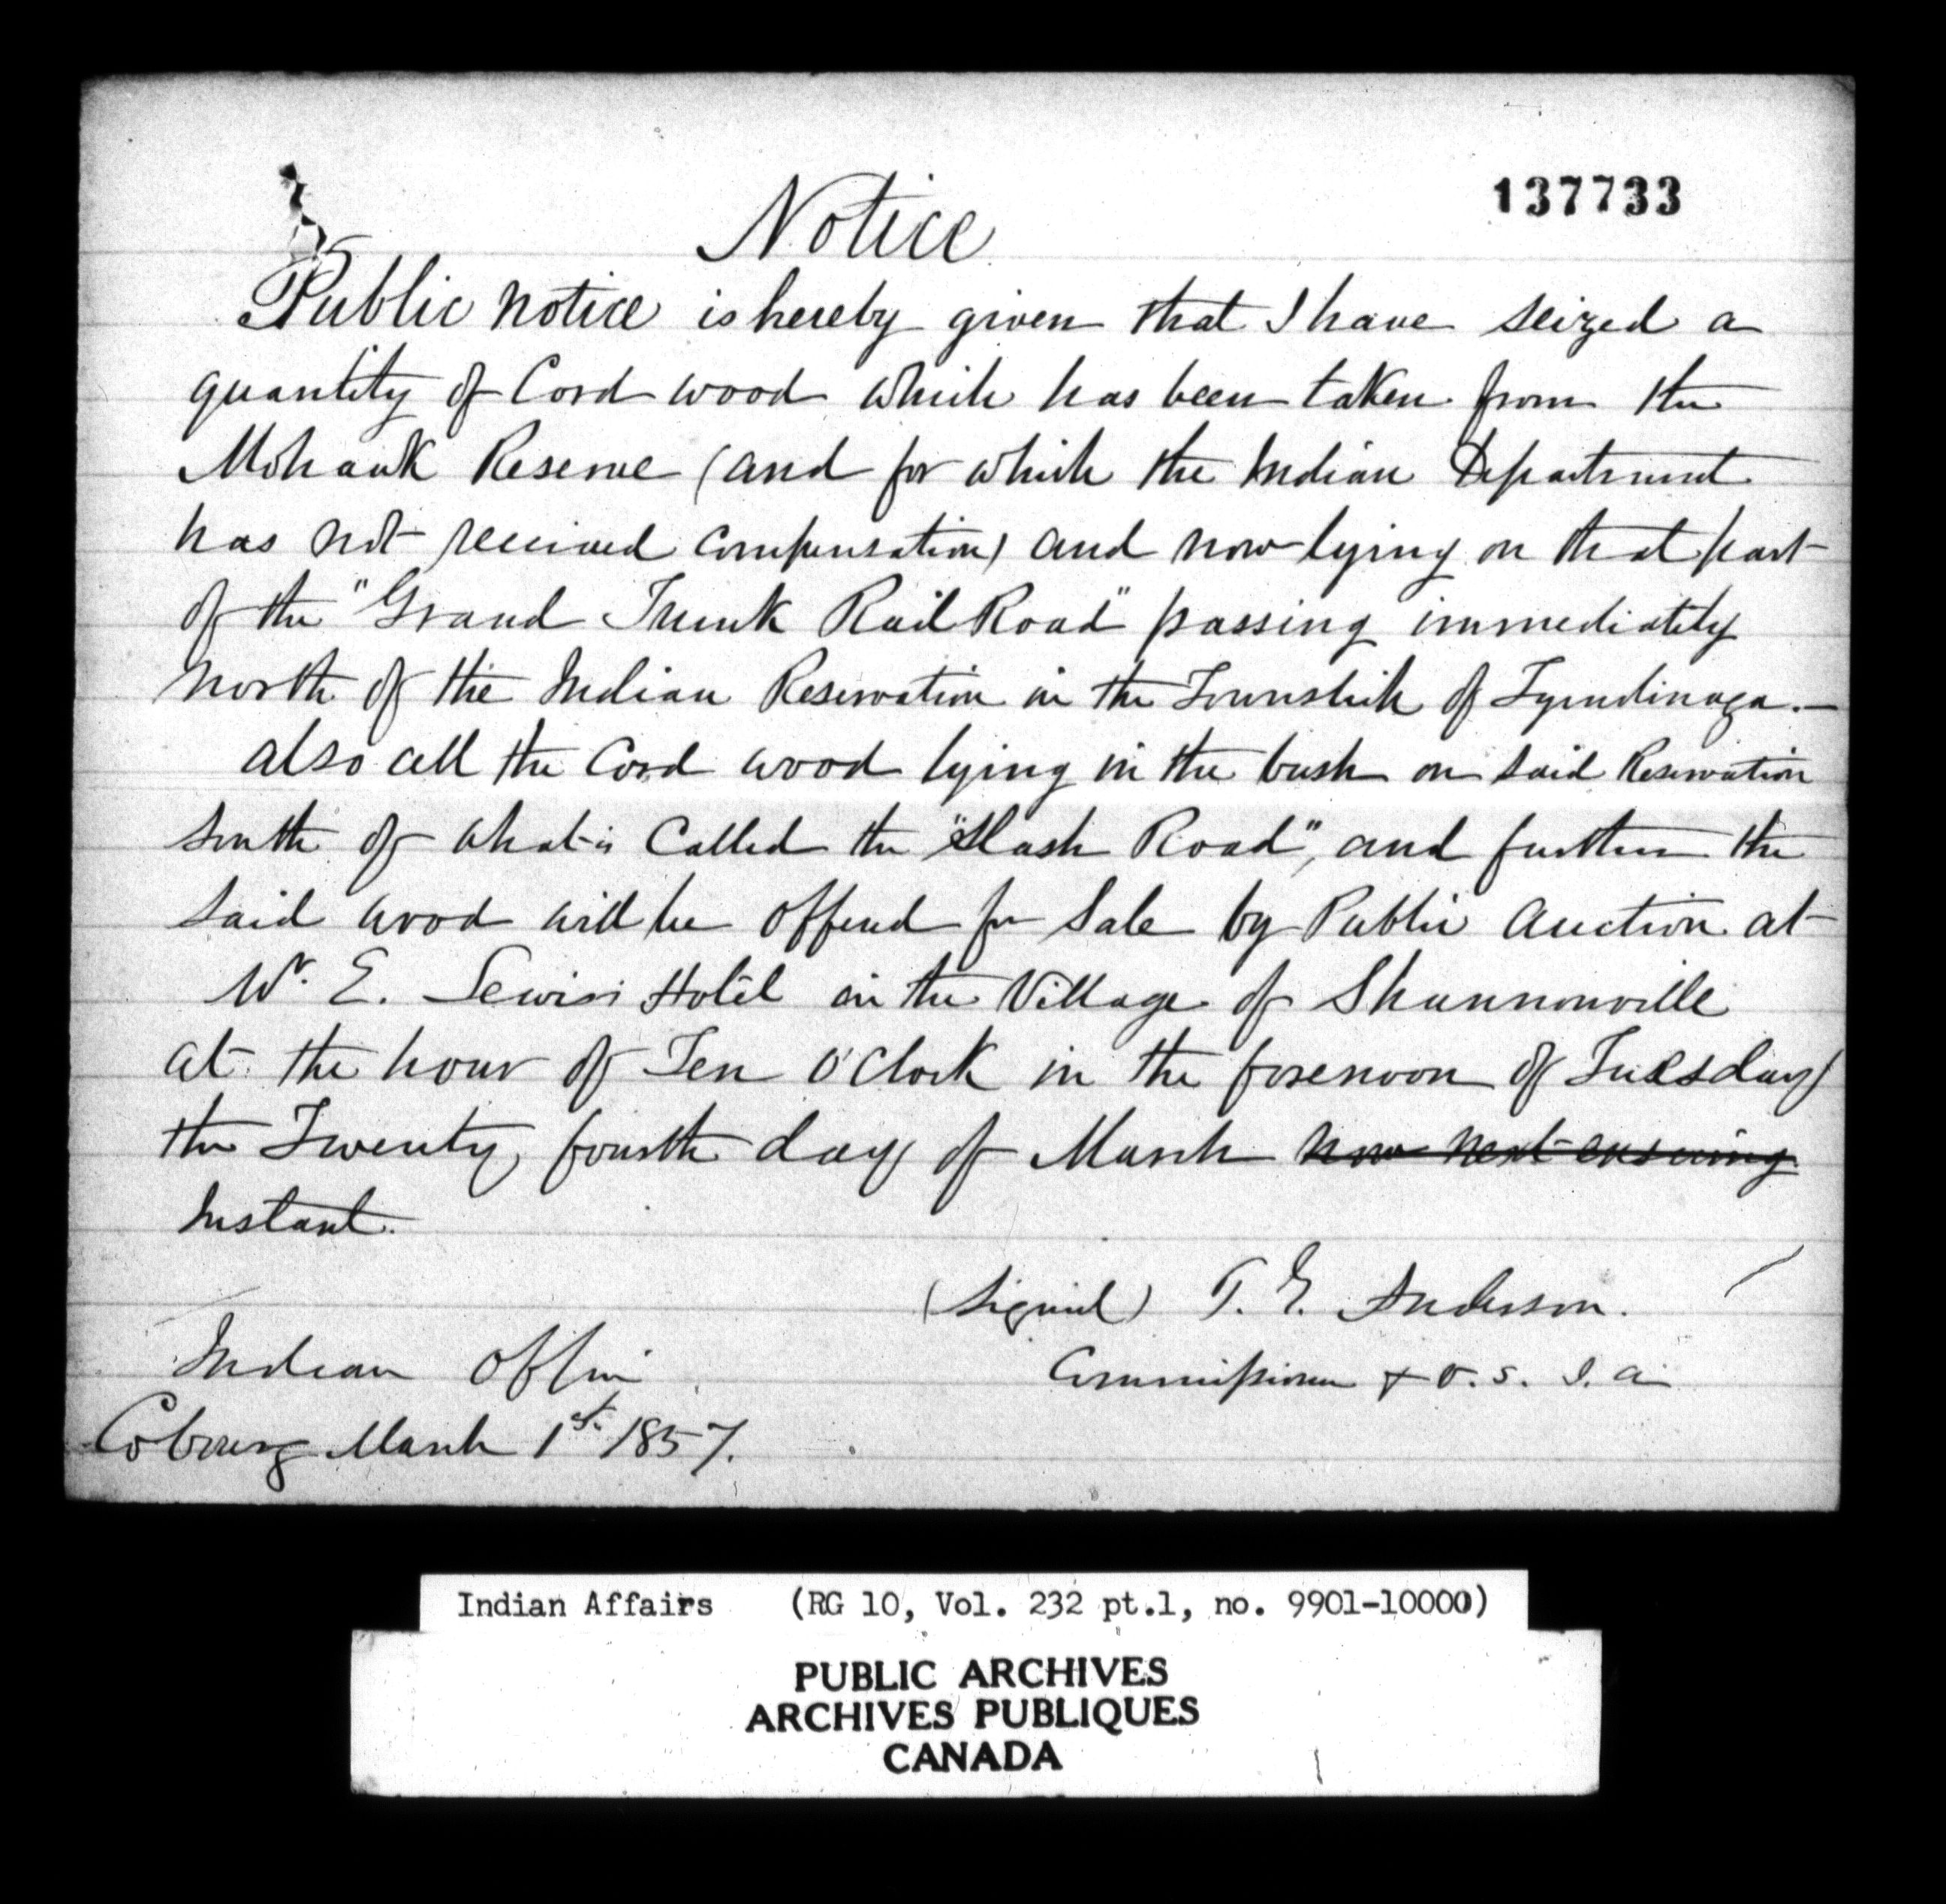 137733
Notice
Public notice is hereby given that I have seized a
quantity of Cord wood which has been taken from the
Mohawk Reserve (and for which the Indian Department
has not received compensation) and now lying on that part
of the "Grand Trunk Rail Road" passing immediately
north of the Indian Reservation in the Township of Tyendinaga.—
also all the Cord wood lying in the bush on said Reservation
south of what is Called the "Slash Road", and further the
said wood will be offered for Sale by Public Auction at
Wm. E. Lewis's Hotel in the Village of Shannonville
at the hour of Ten O'Clock in the forenoon of Tuesday
the Twenty fourth day of March now next ensuing
Instant.
(Signed) T. G. Anderson.
Indian Office
Commissioner & V. S. I. A.
Cobourg March 1st 1857.
Indian Affairs (RG 10, Vol. 232 pt.1, no. 9901-10000)
PUBLIC ARCHIVES
ARCHIVES PUBLIQUES
CANADA